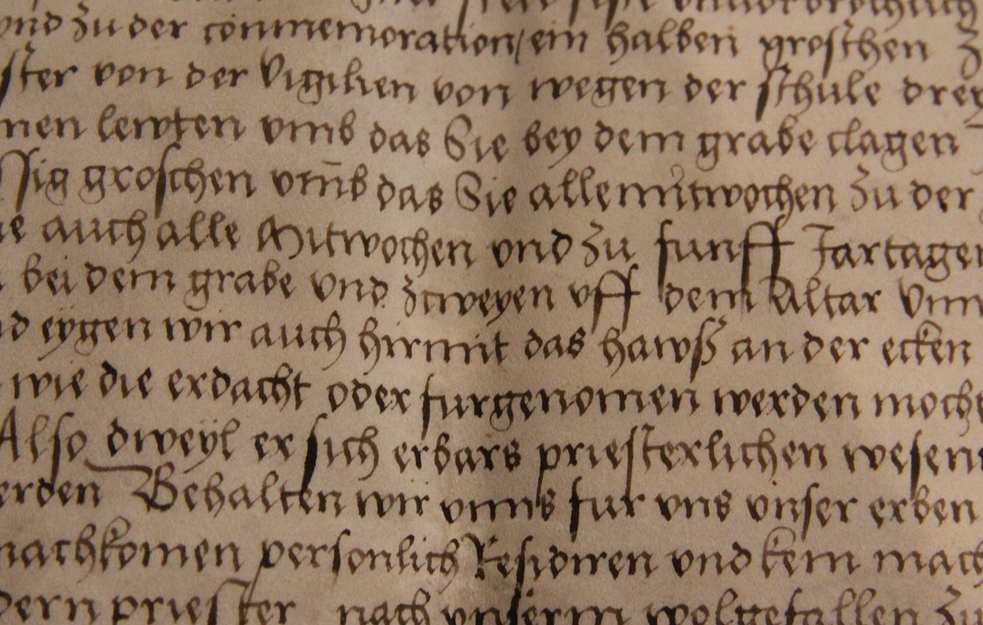 vnd zu der conmemoration/ ein halben groschen
ster von der Vigilien von wegen der schule drey
nen lewten vmb das Sie bey dem grabe clagen
ssig groschen vm̄b das Sie alle mitwochen zu der
auch alle Mitwochen vnd zu funff Jartagen
bei dem grabe vnd zcweyen vff dem Altar Vnn
eygen wir auch hirmit das hawß an der ecken
wie die erdacht oder furgenomen werden moch
Also dweyl er sich erbars priesterlichen wesen
erden Behalten wir vnns fur vns vnser erben
nachkomen personlich Residiren vnd kein mach
dern priester nach vnserm wolgefallen zu